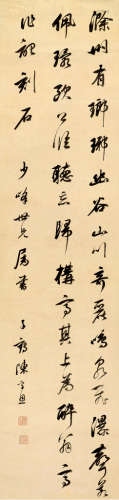 滁州有瑯琊幽谷山川奇麗鳴泉飛瀑聲若
佩環歐公臨聽忘歸構亭其上為醉翁亭
作記刻石 少峰世兄屬書
子鶴陳孚恩